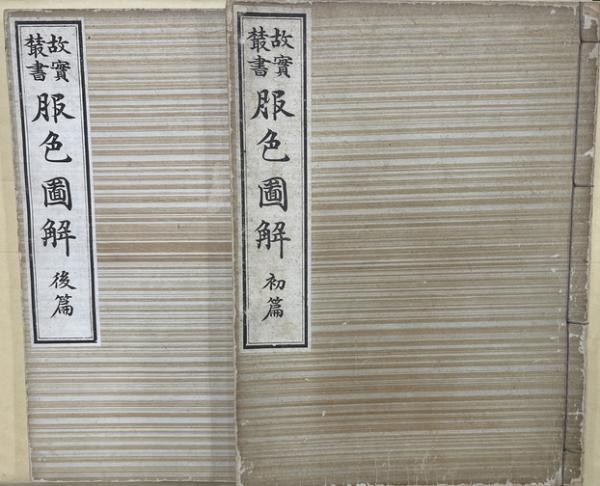 故實
叢書
服色圖解
初篇
故實
叢書
服色圖解
後篇